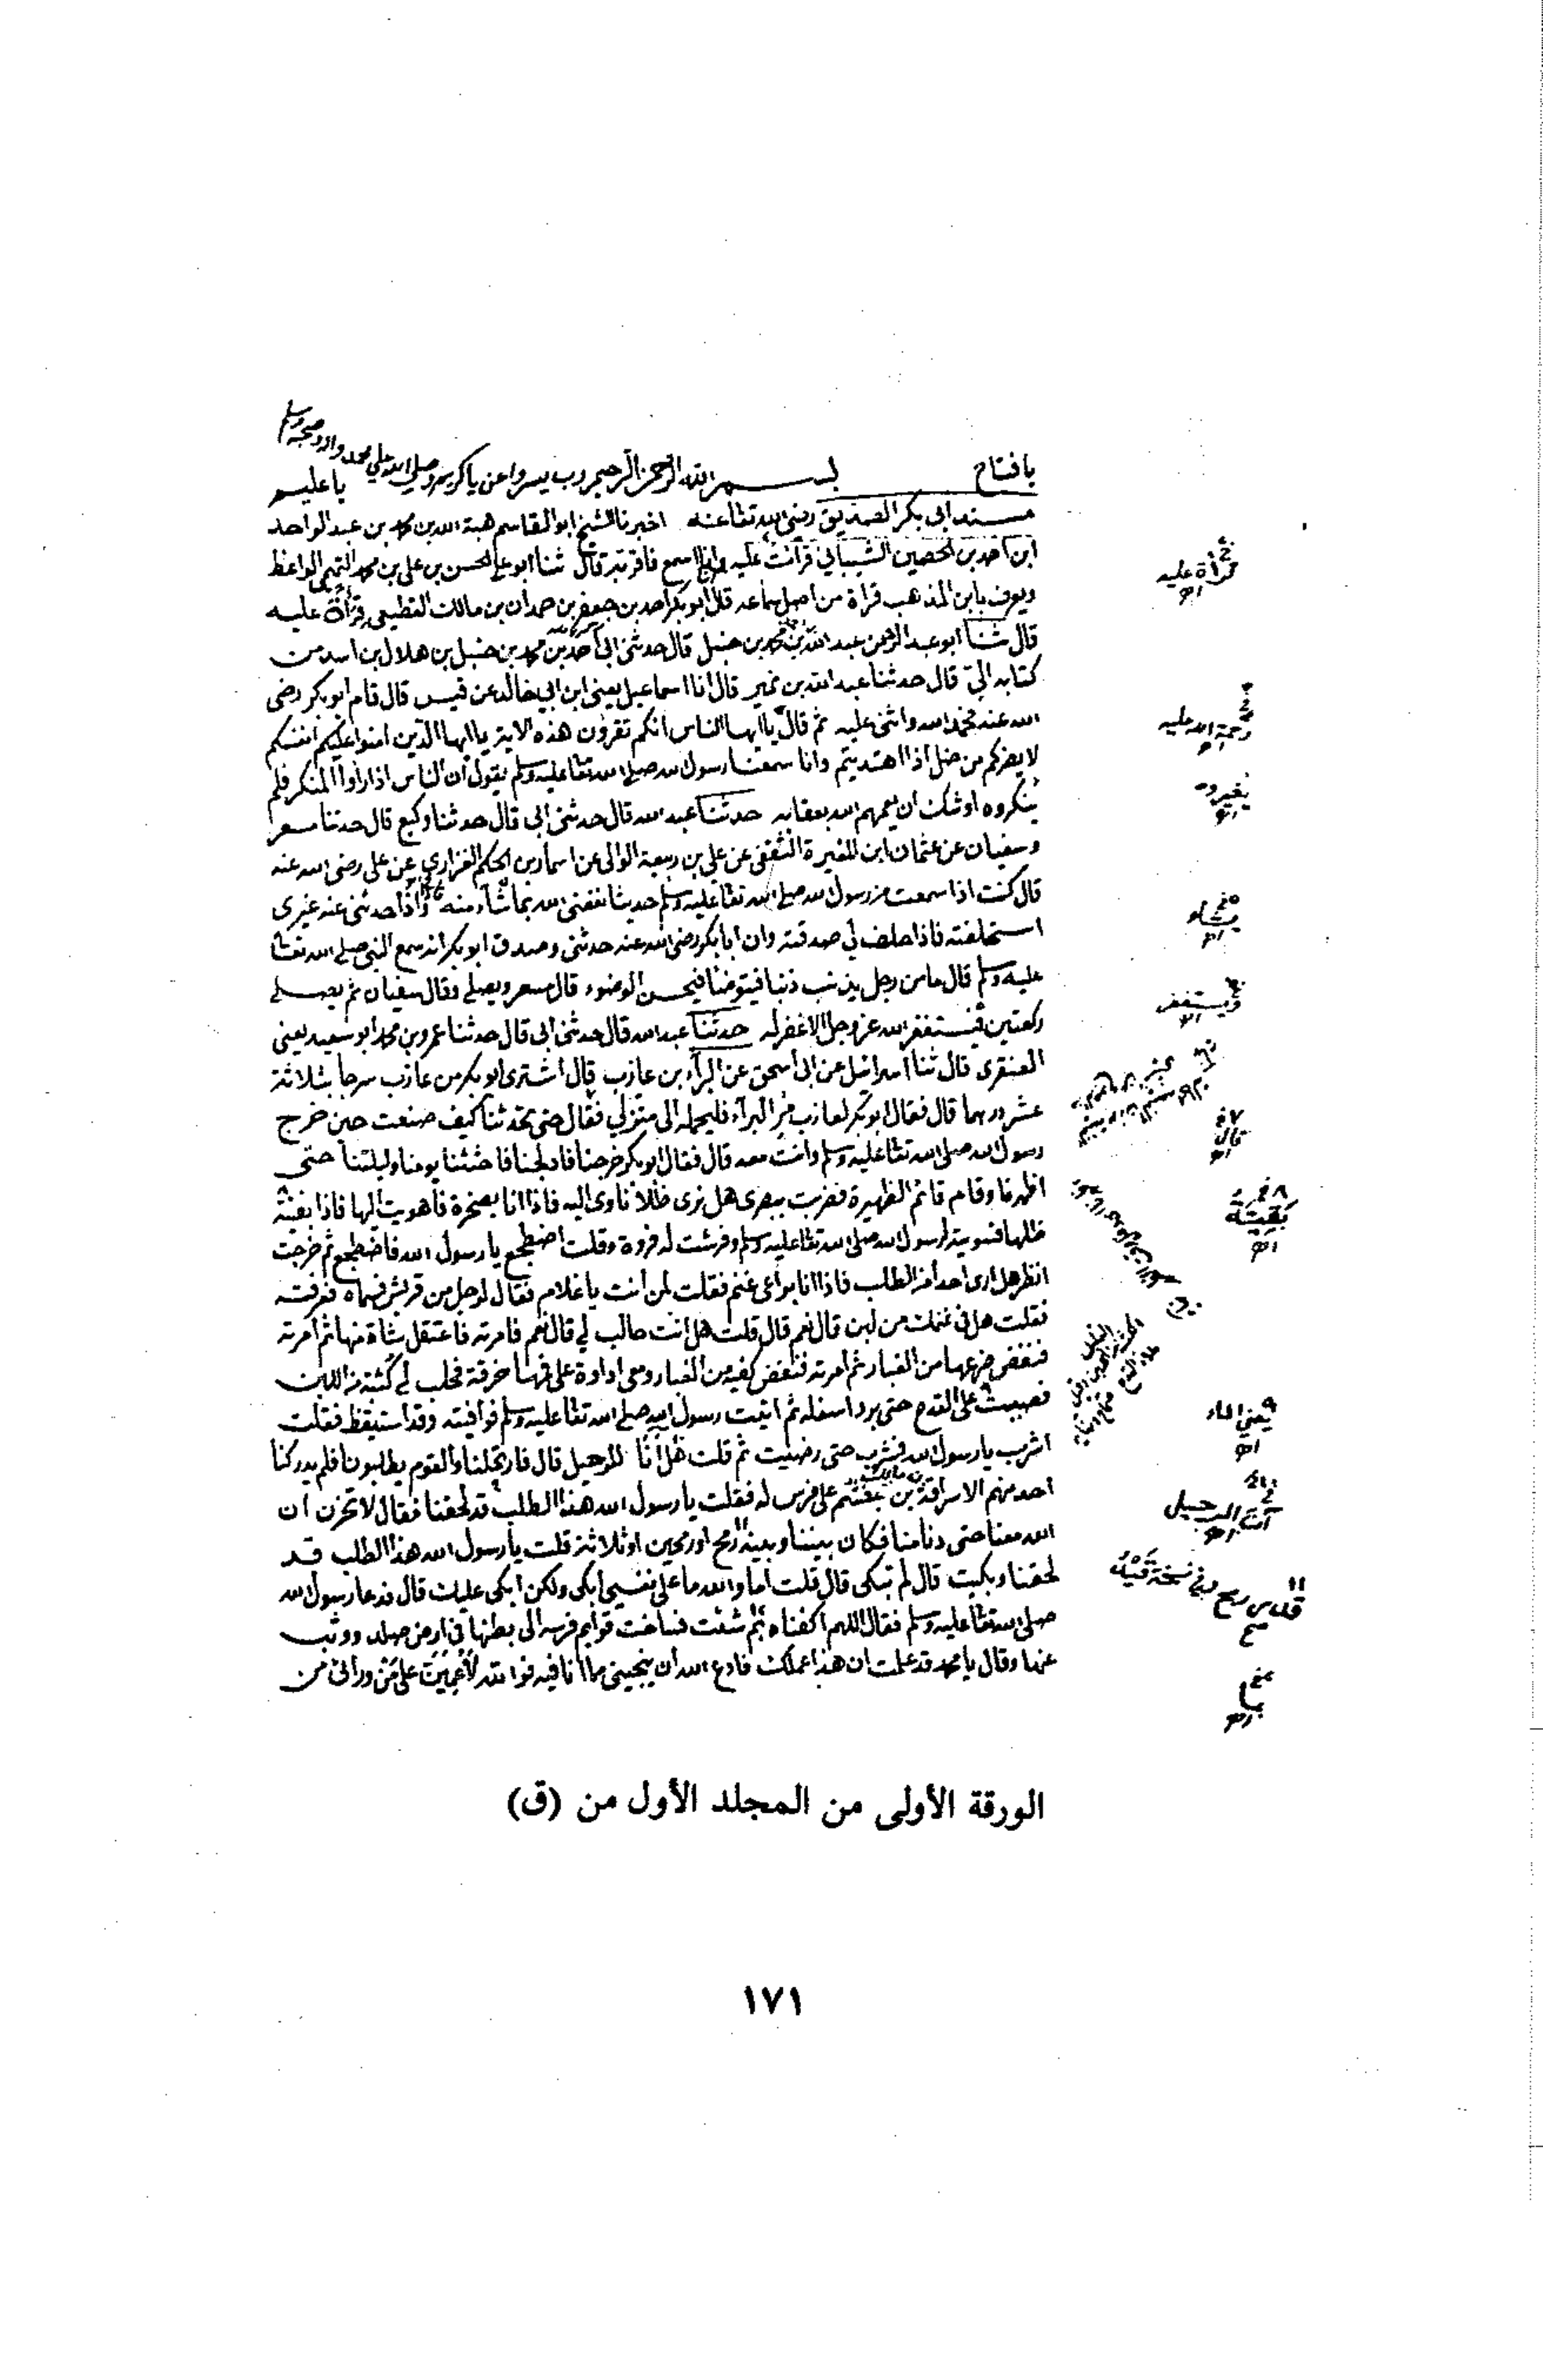 يا فتاح بسم الله الرحمن الرحيم رب يسر واعن يا كريم وصلى الله على محمد واله وصحبه وسلم يا عليم
مسند ابى بكر الصديق رضى الله تعا عنه اخبرنا الشيخ ابو القاسم هبة الله بن محمد بن عبد الواحد
ابن احمد بن الحصين الشيبانى قرأت عليه وانا اسمع فاقر به قال ثنا ابو على الحسن بن على بن محمد التميمى الواعظ
ويعرف بابن المذهب قراة من اصل سماعه قال ابو بكر احمد بن جعفر بن حمدان بن مالك القطيعى قراة عليه
قال ثنا ابو عبد الرحمن عبد الله بن محمد بن حنبل قال حدثنى ابى احمد بن محمد بن حنبل بن هلال بن اسد من
كتابه الى قال حدثنا عبد الله بن نمير قال انا اسماعيل يعنى ابن ابى خالد عن قيس قال قام ابو بكر رضى
الله عنه فحمد الله واثنى عليه ثم قال يا ايها الناس انكم تقرؤن هذه الاية يا ايها الذين امنوا عليكم انفسكم
لا يضركم من ضل اذا اهتديتم وانا سمعنا رسول الله صلى الله تعا عليه وسلم يقول ان الناس اذا راوا المنكر فلم
ينكروه اوشك ان يعمهم الله بعقابه حدثنا عبد الله قال حدثنى ابى قال حدثنا وكيع قال حدثنا مسعر
وسفيان عن عثمان ابن المغيرة الثقفى عن على بن ربيعة الوالى عن اسمار بن الحكم الفزارى عن على رضى الله عنه
قال كنت اذا سمعت من رسول الله صلى الله تعا عليه وسلم حديثا نفعنى الله بما شاء منه واذا حدثنى عنه غيرى
استحلفته فاذا حلف لى صدقته وان ابا بكر رضى الله عنه حدثنى وصدق ابو بكر انه سمع النبى صلى الله تعا
عليه وسلم قال ما من رجل يذنب ذنبا فيتوضأ فيحسن الوضوء قال مسعر ويصلى وقال سفيان ثم يصلى
ركعتين فيستغفر الله عز وجل الا غفر له حدثنا عبد الله قال حدثنى ابى قال حدثنا عمرو بن محمد ابو سعيد يعنى
العنقزى قال ثنا اسرائيل عن ابى اسحق عن البرآء بن عازب قال اشترى ابو بكر من عازب سرجا بثلاثة
عشر درهما قال فقال ابو بكر لعازب مر البرآء فليحمله الى منزلى فقال حتى تحدثنا كيف صنعت حين خرج
رسول الله صلى الله تعا عليه وسلم وانت معه قال فقال ابو بكر خرجنا فادلجنا فاحثثنا يومنا وليلتنا حتى
اظهرنا وقام قائم الظهيرة فضربت ببصرى هل نرى ظلا ناوى اليه فاذا انا بصخرة فاهويت اليها فاذا بقية
ظلها فسويته لرسول الله صلى الله تعا عليه وسلم وفرشت له فروة وقلت اضطجع يا رسول الله فاضطجع ثم خرجت
انظر هل ارى احدا من الطلب فاذا انا براعى غنم فقلت لمن انت يا غلام فقال لرجل من قريش فسماه فعرفته
فقلت هل فى غنمك من لبن قال نعم قال قلت هل انت حالب لى قال نعم فامرته فاعتقل شاة منها ثم امرته
فنفض ضرعها من الغبار ثم امرته فنفض كفيه من الغبار ومعى اداوة على فمها خرقة فحلب لى كثبة من اللبن
فصببت على القدح حتى برد اسفله ثم اتيت رسول الله صلى الله تعا عليه وسلم فوافيته وقد استيقظ فقلت
اشرب يا رسول الله فشرب حتى رضيت ثم قلت هل انا للرحيل قال فارتحلنا والقوم يطلبونا فلم يدركنا
احد منهم الا سراقة بن مالك بن جعشم على فرس له فقلت يا رسول الله هذا الطلب قد لحقنا فقال لا تحزن ان
الله معنا حتى دنا منا فكان بيننا وبينه رمح او رمحين او ثلاثة قلت يا رسول الله هذا الطلب قد
لحقنا وبكيت قال لم تبكى قال قلت اما والله ما على نفسى ابكى ولكن ابكى عليك قال فدعا رسول الله
صلى الله تعا عليه وسلم فقال اللهم اكفناه بم شئت فساخت قوايم فرسه الى بطنها فى ارض صلد ووثب
عنها وقال يا محمد قد علمت ان هذا عملك فادع الله ان ينجينى مما انا فيه فوالله لاعمين على من ورائى من
قرأة عليه
رحمة الله عليه
يغيروه
ويستغفر
قال
بقية
يعنى الماء
الرحيل
بما
الورقة الأولى من المجلد الأول من (ق)
١٧١